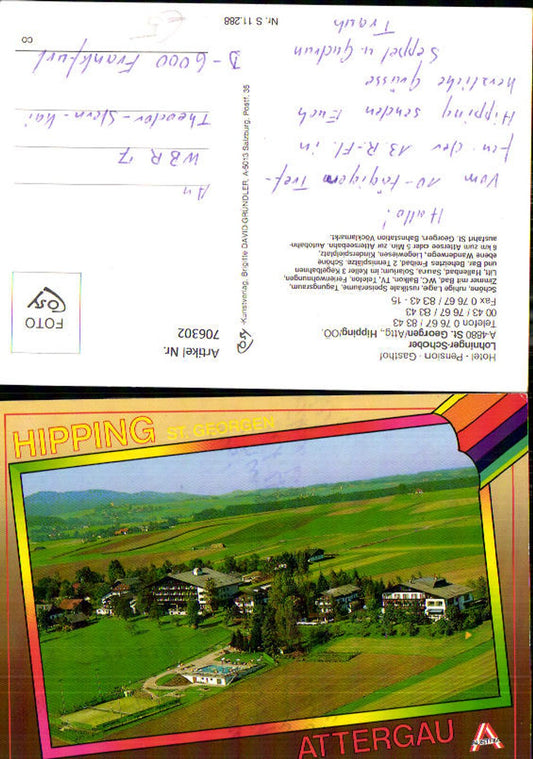 Hotel - Pension - Gasthof
Lohninger-Schober
A-4880 St. Georgen/Attg., Hipping/OÖ.
Telefon 0 76 67 / 83 43
00 43 / 76 67 / 83 43
Fax 0 76 67 / 83 43 - 15
Schöne, ruhige Lage, rustikale Speiseräume, Tagungsraum,
Zimmer mit Bad, WC, Balkon, TV, Telefon, Ferienwohnungen,
Lift, Hallenbad, Sauna, Solarium, im Keller 3 Kegelbahnen
und Bar. Beheiztes Freibad, 2 Tennisplätze. Schöne
ebene Wanderwege, Liegewiesen, Kinderspielplatz,
6 km zum Attersee oder 5 Min. zur Atterseebahn. Autobahn-
ausfahrt St. Georgen. Bahnstation Vöcklamarkt.
Hallo!
Vom 10-tägigem Tref-
fen der 13. R.-Fl. in
Hipping senden Euch
herzliche Grüsse
Seppel u. Gudrun
Nr. S 11.288
Artikel Nr.
706302
Cosy -Kunstverlag, Brigitte DAVID-GRÜNDLER, A-5013 Salzburg, Postf. 35
FOTO
Cosy
An
WBR 17
Theodor-Stern-Kai
D-6000 Frankfurt
CO
HIPPING ST. GEORGEN
ATTERGAU
AUSTRIA